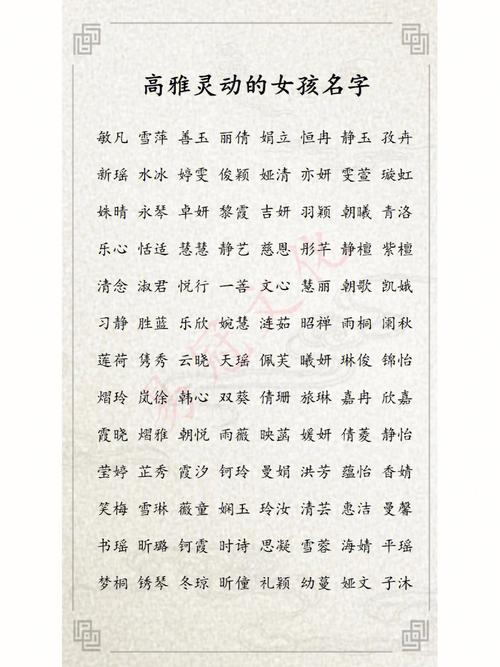 高雅灵动的女孩名字
敏凡 雪萍 善玉 丽倩 娟立 恒冉 静玉 孜卉
新瑶 水冰 婷雯 俊颖 娅清 亦妍 雯萱 璇虹
姝晴 永琴 卓妍 黎霞 吉妍 羽颖 朝曦 青洛
乐心 恬适 慧慧 静艺 慈恩 彤芊 静檀 紫檀
清念 淑君 悦行 一善 文心 慧丽 朝歌 凯娥
习静 胜蓝 乐欣 婉慧 涟茹 昭禅 雨桐 阑秋
莲荷 隽秀 云晓 天瑶 佩芙 曦妍 琳俊 锦怡
熠玲 岚徐 韩心 双葵 倩珊 旅琳 嘉冉 欣嘉
霞晓 熠雅 朝悦 雨薇 映菡 媛妍 倩菱 静怡
莹婷 芷秀 霞汐 钶玲 曼娟 洪芳 蕴怡 香婧
笑梅 雪琳 薇童 娴玉 玲汝 清芸 惠洁 曼馨
书瑶 昕璐 钶霞 时诗 思凝 雪蓉 海婧 平瑶
梦桐 锈琴 冬琼 昕僮 礼颖 幼蔓 娅文 子沐